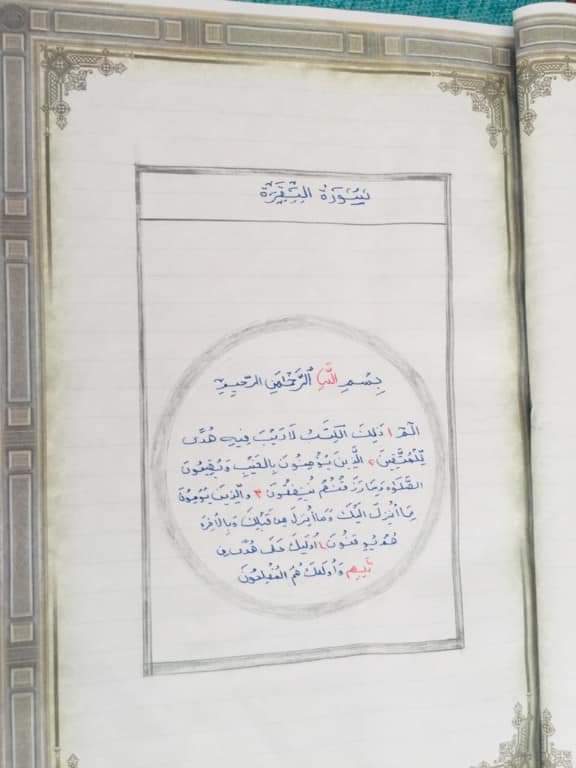 سُورَةُ البَقَرَة
بِسْمِ اللَّهِ الرَّحْمَٰنِ الرَّحِيمِ
الٓمٓ ١ ذَلِكَ الكِتَبُ لَا رَيْبَ فِيهِ هُدًى
لِّلْمُتَّقِينَ ٢ الَّذِينَ يُؤْمِنُونَ بِالغَيْبِ وَيُقِيمُونَ
الصَّلَوٰةَ وَمَا رَزَقْنَٰهُمْ يُنفِقُونَ ٣ وَالَّذِينَ يُؤْمِنُونَ
بِمَا أُنزِلَ إِلَيْكَ وَمَا أُنزِلَ مِن قَبْلِكَ وَبِالآخِرَةِ
هُمْ يُوقِنُونَ ٤ أُوْلَئِكَ عَلَى هُدًى مِّن
رَّبِّهِمْ وَأُوْلَئِكَ هُمُ المُفْلِحُونَ